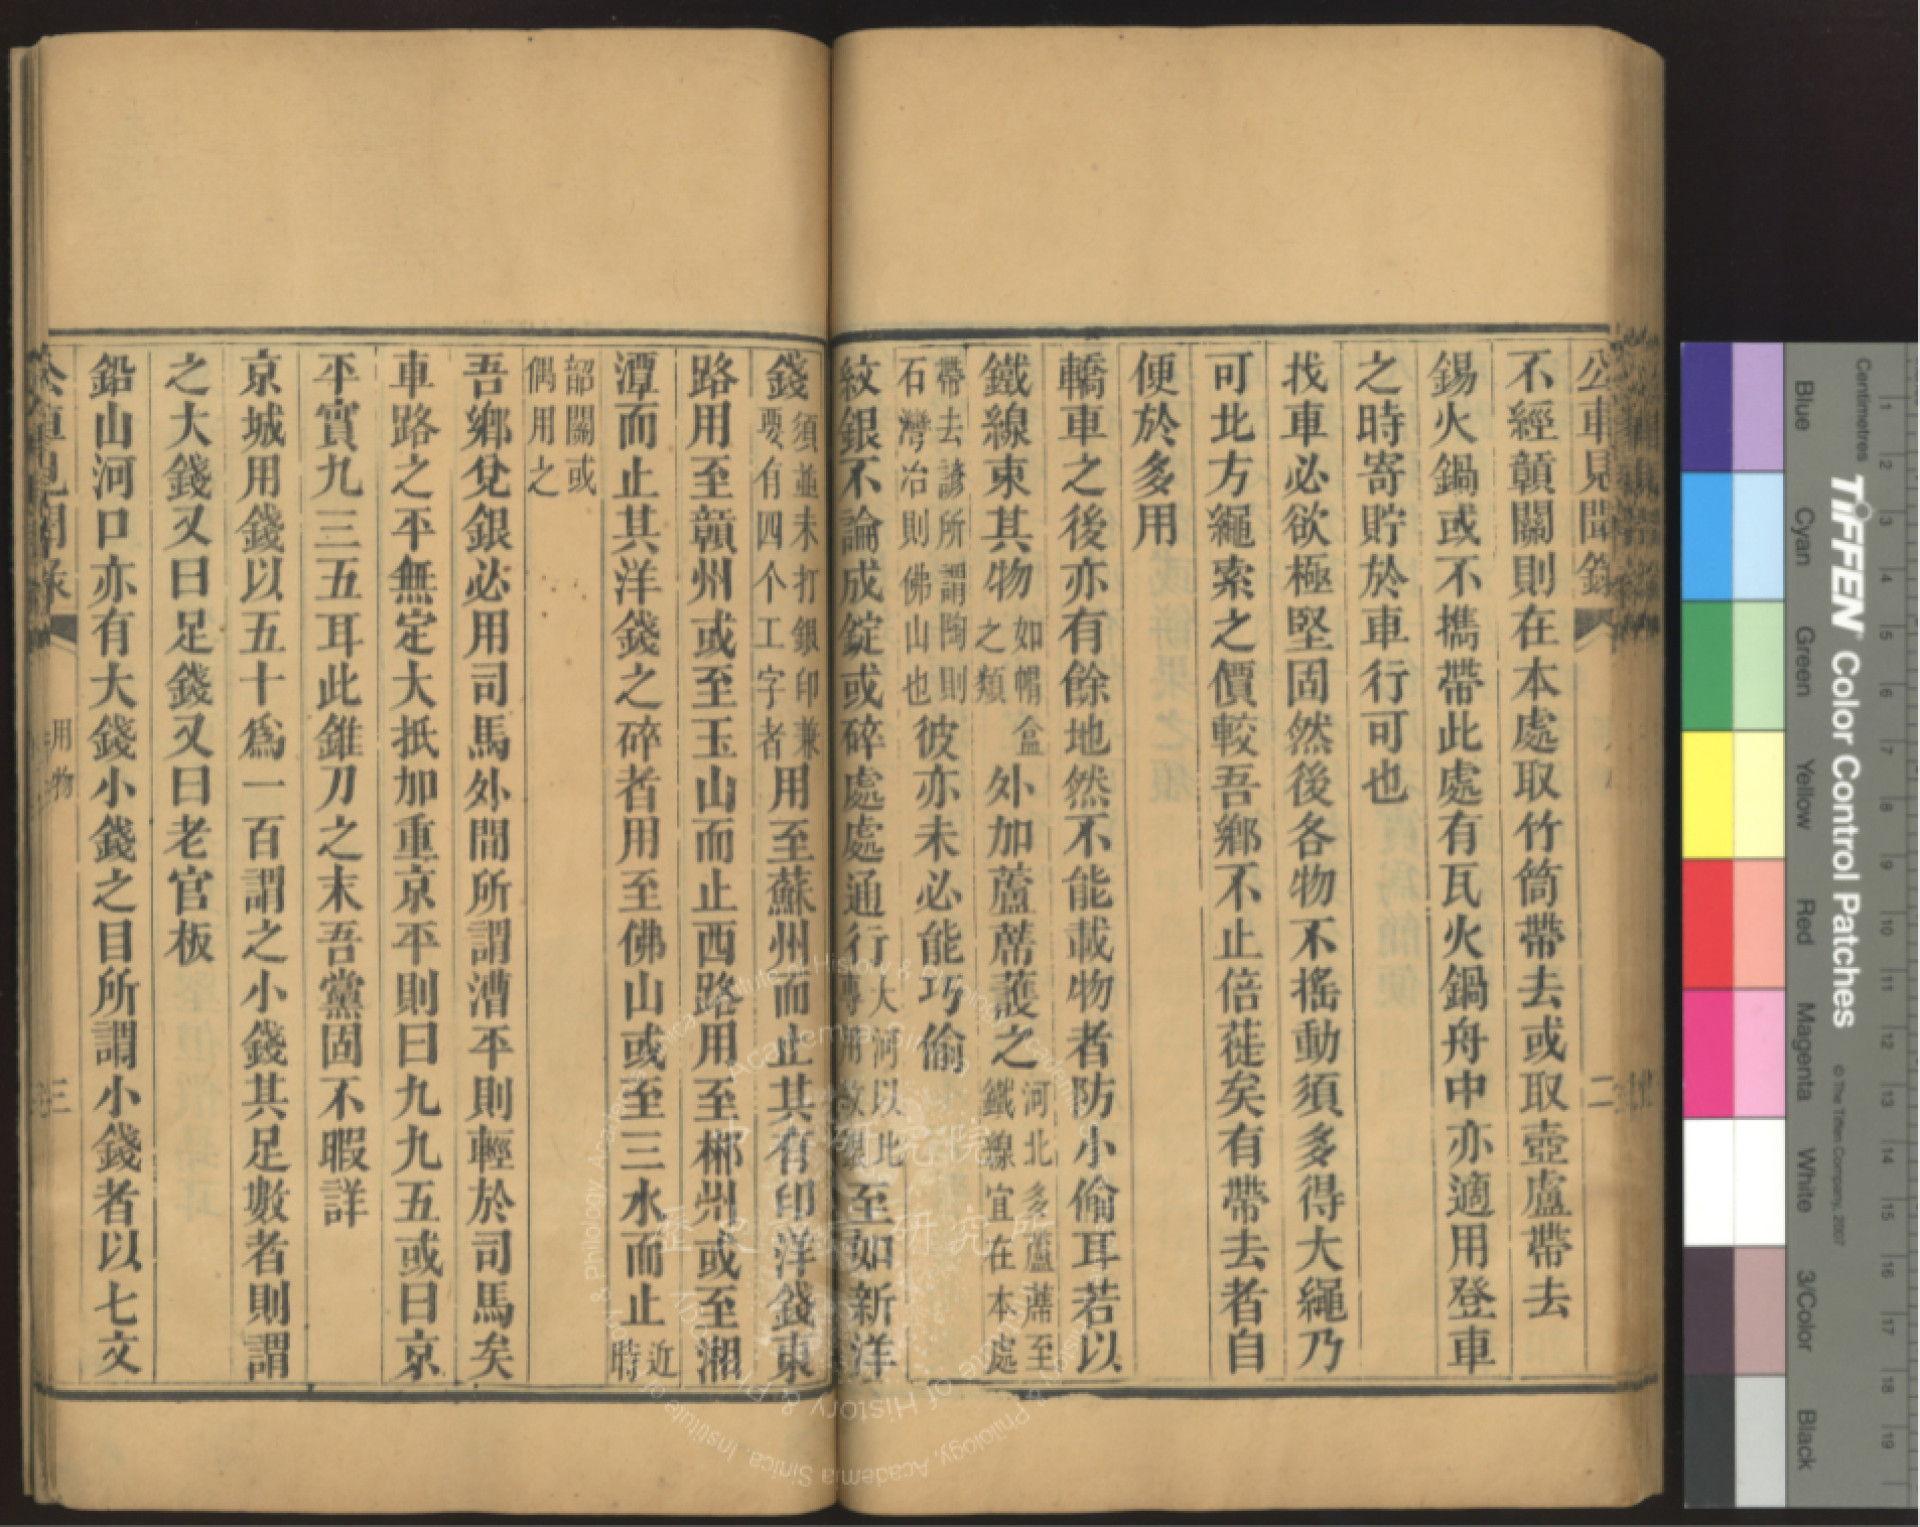 公車見聞錄
二
不經贛關則在本處取竹筒帶去或取壺盧帶去
錫火鍋或不攜帶此處有瓦火鍋舟中亦適用登車
之時寄貯於車行可也
找車必欲極堅固然後各物不搖動須多得大繩乃
可北方繩索之價較吾鄉不止倍蓰矣有帶去者自
便於多用
轎車之後亦有餘地然不能載物者防小偷耳若以
鐵線束其物如帽盒之類外加蘆蓆護之河北多蘆蓆至鐵線宜在本處
帶去諺所謂陶則石灣冶則佛山也彼亦未必能巧偷
紋銀不論成錠或碎處處通行大河以北專用紋銀至如新洋
錢須並未打銀印兼要有四个工字者用至蘇州而止其有印洋錢東
路用至贛州或至玉山而止西路用至郴州或至湘
潭而止其洋錢之碎者用至佛山或至三水而止近時
韶關或偶用之
吾鄉兌銀必用司馬外間所謂漕平則輕於司馬矣
車路之平無定大抵加重京平則曰九九五或曰京
平實九三五耳此錐刀之末吾黨固不暇詳
京城用錢以五十為一百謂之小錢其足數者則謂
之大錢又曰足錢又曰老官板
鉛山河口亦有大錢小錢之目所謂小錢者以七文
用物
三
Blue
Cyan
Green
Yellow
Red
Magenta
White
3/Color
Black
TIFFEN Color Control Patches
© The Tiffen Company, 2007
Centimetres
1 2 3 4 5 6 7 8 9 10 11 12 13 14 15 16 17 18 19